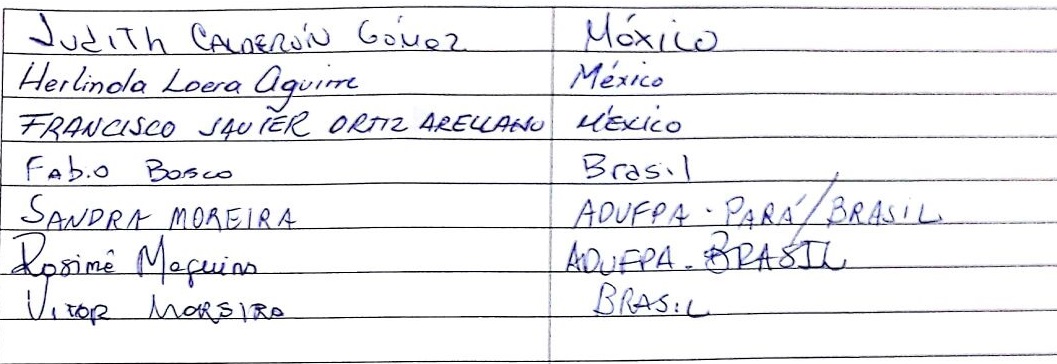 Judith Calderón Gómez México
Herlinda Loera Aguirre México
FRANCISCO JAVIER ORTIZ ARELLANO MÉXICO
Fabio Bosco Brasil
SANDRA MOREIRA ADUFPA - PARÁ/BRASIL
Rosimê Meguins ADUFPA - BRASIL
VITOR MOREIRA BRASIL